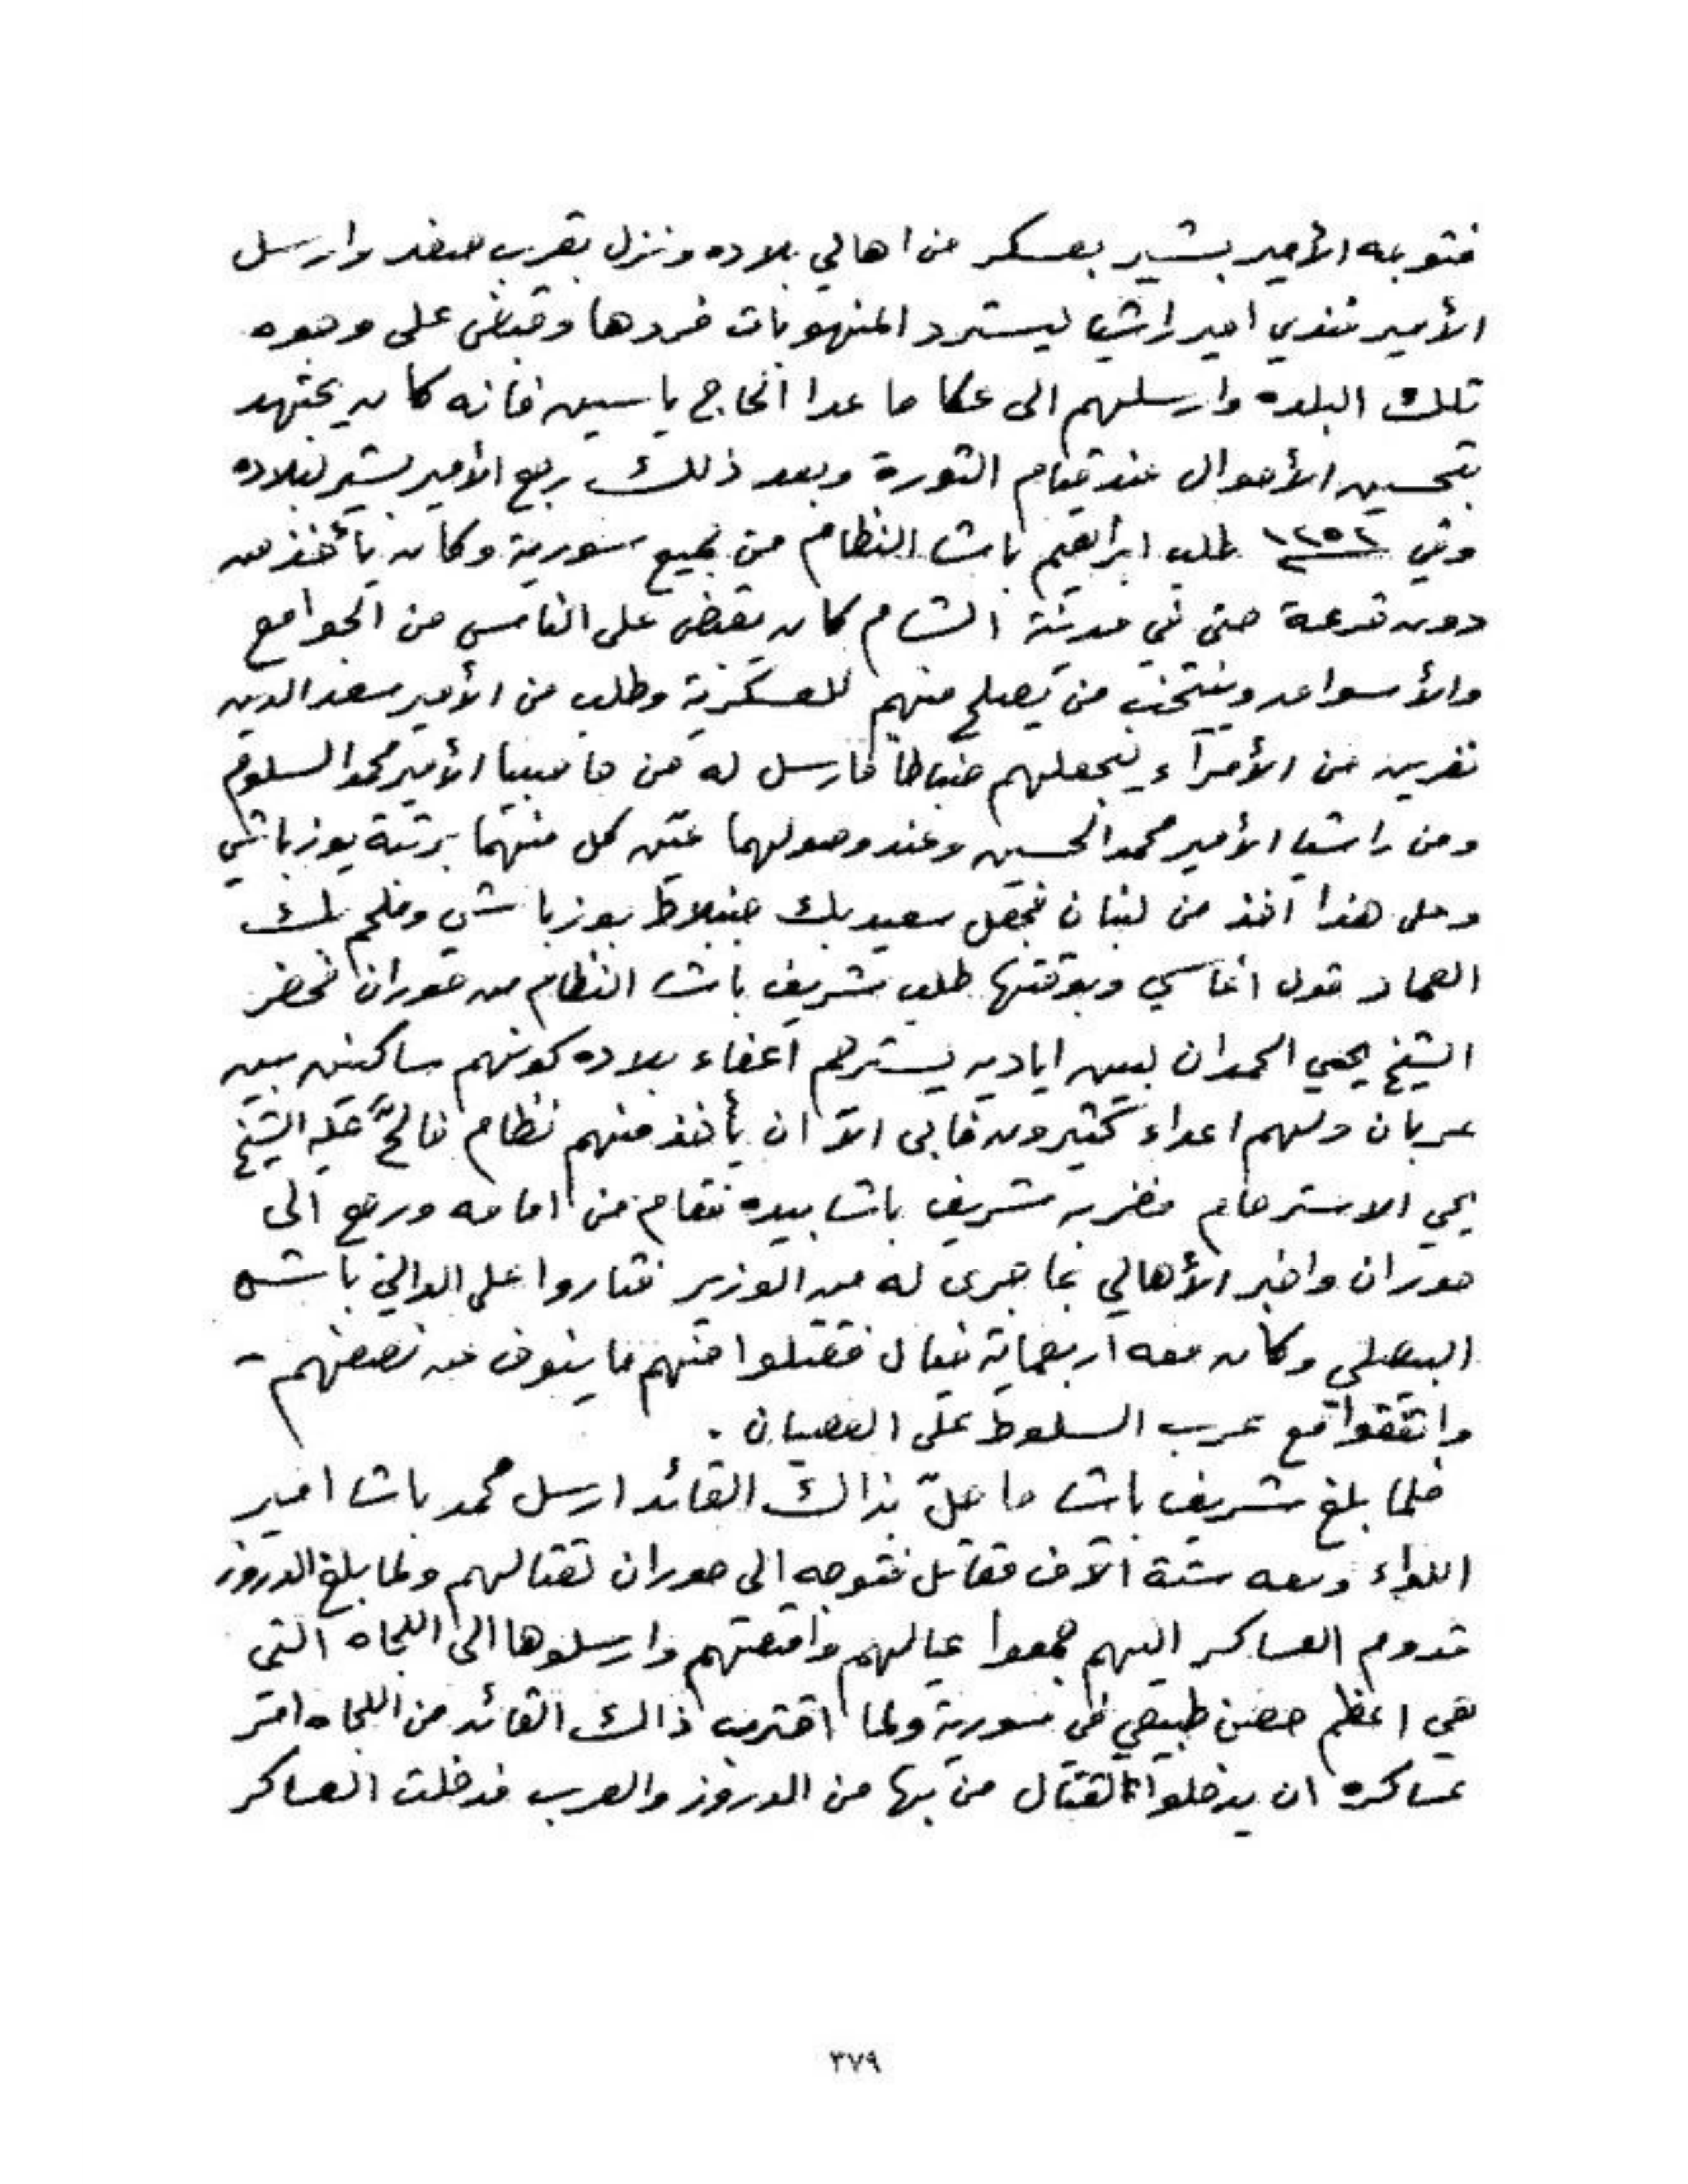 فتوجه الأمير بشير بعسكر من اهالي بلاده ونزل بقرب صفد وارسل
الأمير فندي امير راشيا ليسترد المنهوبات فردها وقبض على وجوه
تلك البلده وارسلهم الى عكا ما عدا الحاج ياسين فانه كان يجتهد
بتحسين الأحوال عند قيام الثورة وبعد ذلك رجع الأمير بشير لبلاده
وفي ١٢٥٢ طلب ابراهيم باشا النظام من جميع سورية وكان يأخذ من
دون قرعة حتى في مدينة الشام كان يقبض على الناس من الجوامع
والأسواق وينتخب من يصلح منهم للعسكرية وطلب من الأمير سعد الدين
نفرين من الأمرآء ليجعلهم ضباطاً فارسل له من حاصبيا الأمير محمد السلوم
ومن راشيا الأمير محمد الحسين وعند وصولهما عيّن كل منهما برتبة يوزباشي
وعلى هذا اخذ من لبنان فجعل سعيد بك جنبلاط يوزباشي وملحم بك
العماد قول اغاسي وبوقتها طلب شريف باشا النظام من حوران فحضر
الشيخ يحيي الحمدان لبين اياديه يسترحم اعفاء بلاده كونهم ساكنين بين
عربان ولهم اعداء كثيرون فابى الاّ ان يأخذ منهم نظام فالحّ عليه الشيخ
يحي الاسترحام فضربه شريف باشا بيده فقام من امامه ورجع الى
حوران واخبر الأهالي بما جرى له من الوزير فثاروا على الوالي باشه
البيصلي وكان معه اربعماية خيال فقتلوا منهم ما ينوف عن نصفهم -
واتفقوا مع عرب السلوط على العصيان .
فلما بلغ شريف باشا ما حلّ بذاك القائد ارسل محمد باشا امير
اللواء ومعه ستة آلاف مقاتل فتوجه الى حوران لقتالهم ولما بلغ الدروز
قدوم العساكر اليهم جمعوا عيالهم وامتعتهم وارسلوها الى اللجاه التي
هي اعظم حصن طبيعي في سورية ولما اقترب ذاك القائد من اللجاه امر
عساكره ان يدخلوا لقتال من بها من الدروز والعرب فدخلت العساكر
٣٧٩